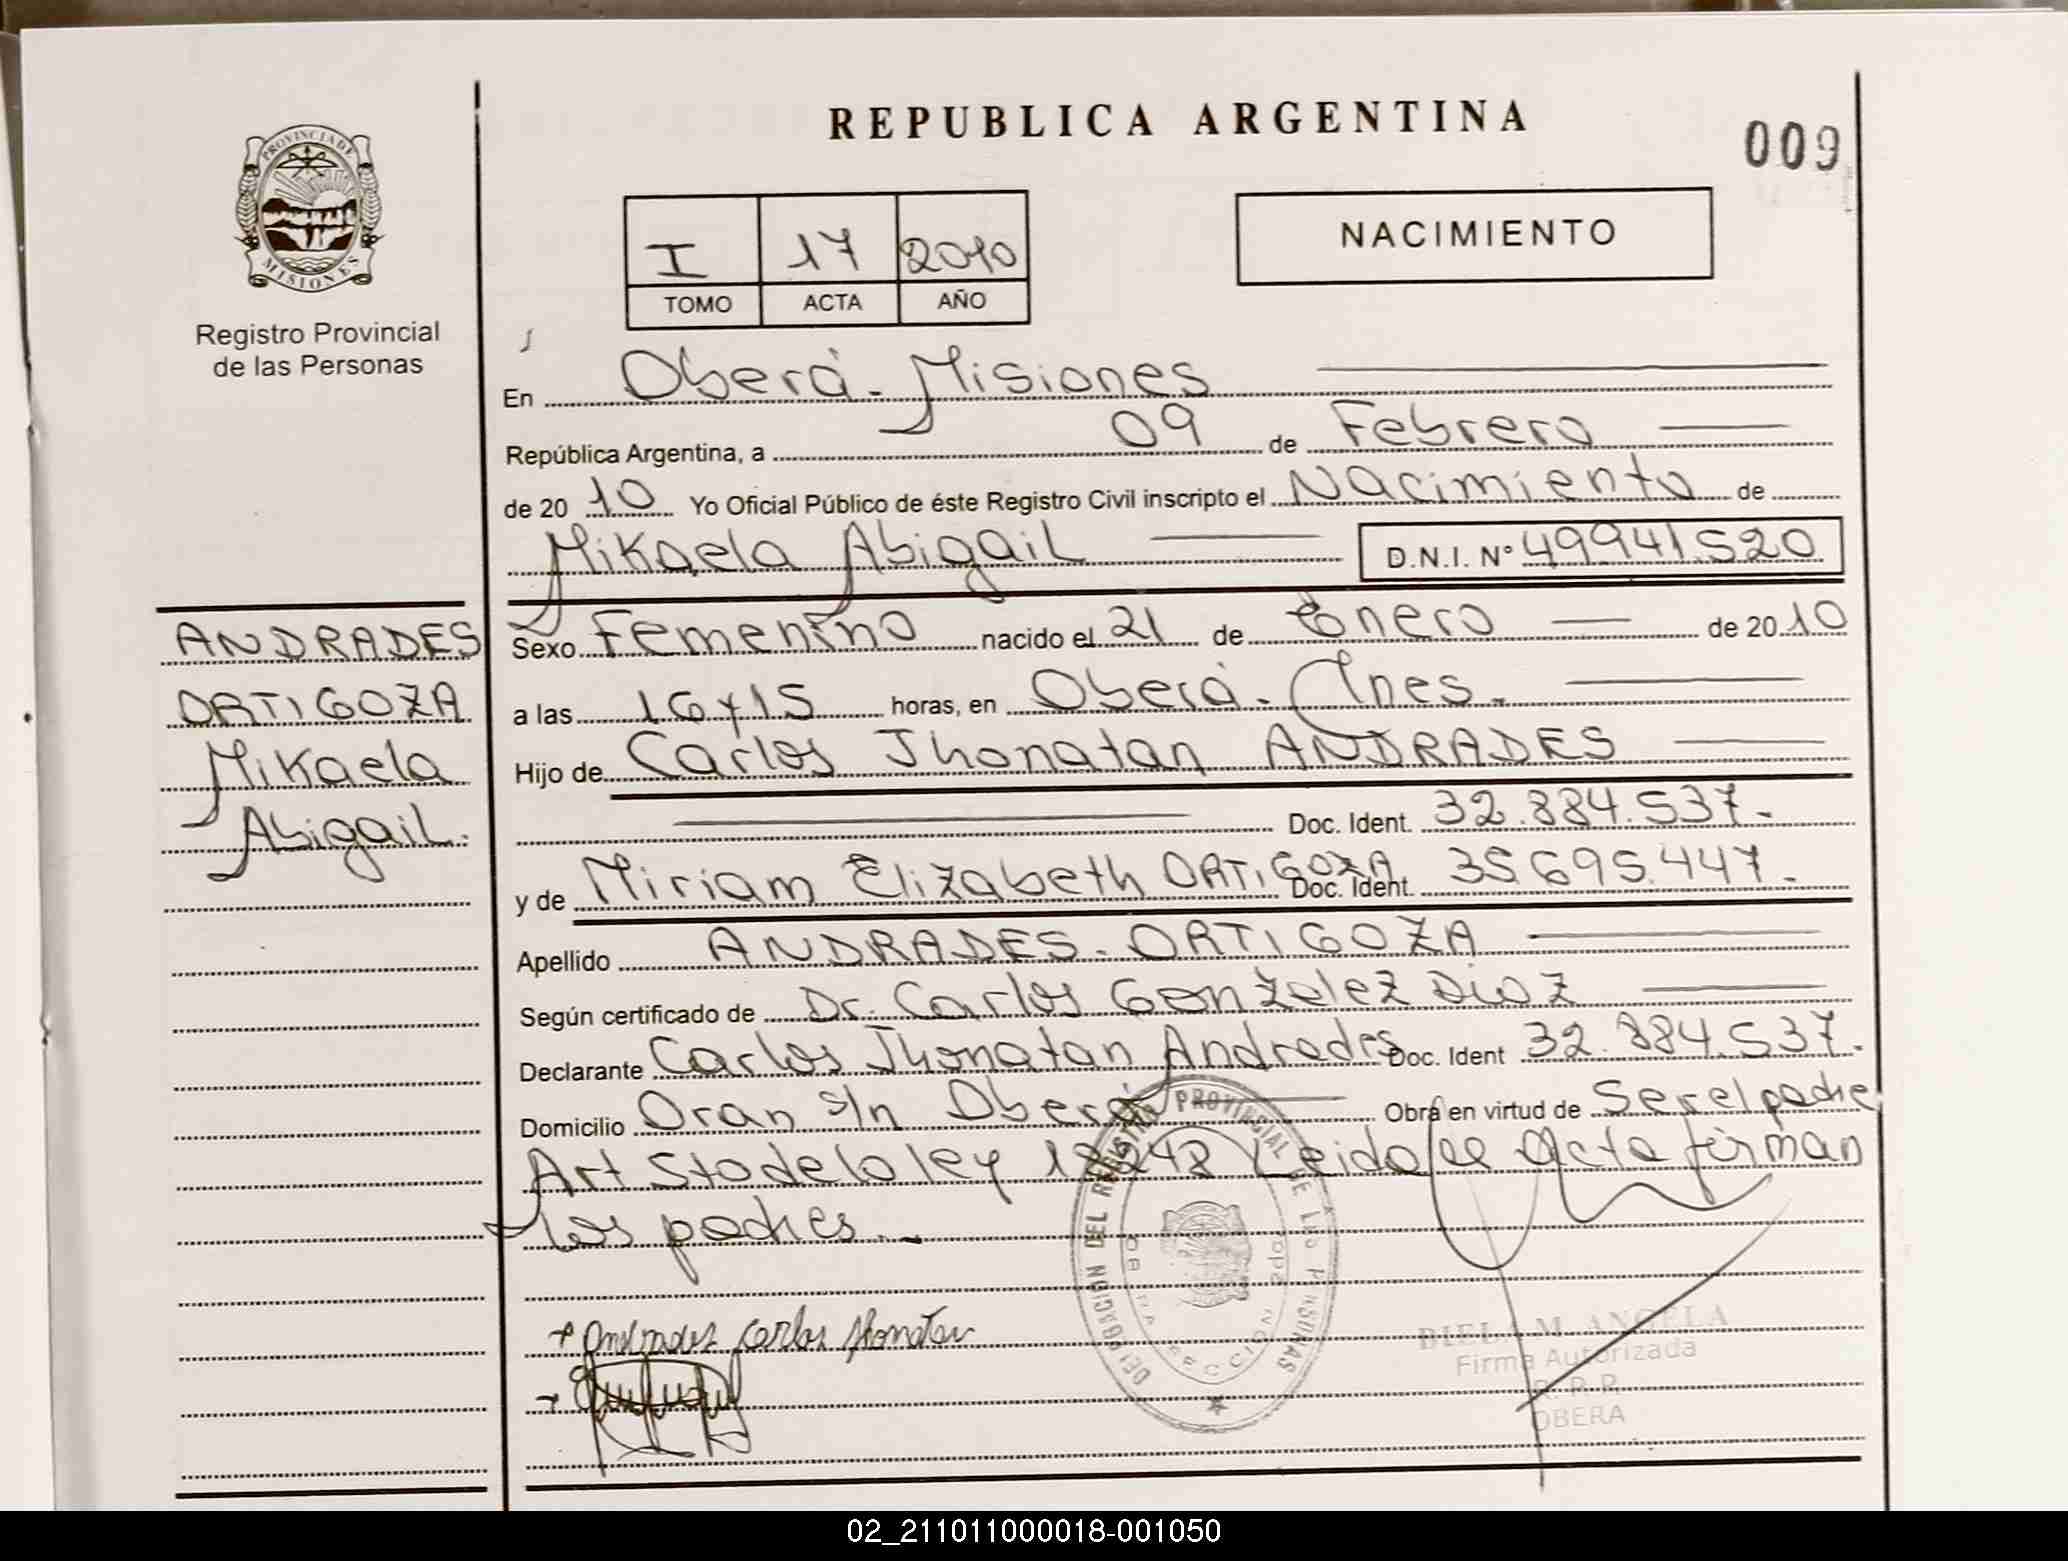 REPUBLICA ARGENTINA
009
PROVINCIA DE
MISIONES
Registro Provincial
de las Personas
I 17 2010
TOMO ACTA AÑO
NACIMIENTO
En Oberá - Misiones
República Argentina, a 09 de Febrero
de 20 10 Yo Oficial Público de éste Registro Civil inscripto el Nacimiento de
Mikaela Abigail D.N.I. Nº 49941520
ANDRADES
ORTIGOZA
Mikaela
Abigail.
Sexo Femenino nacido el 21 de Enero de 20 10
a las 16 y 15 horas, en Oberá. Mnes.
Hijo de Carlos Jhonatan ANDRADES
Doc. Ident. 32.884.537.-
y de Miriam Elizabeth ORTIGOZA Doc. Ident. 35.695.447.-
Apellido ANDRADES - ORTIGOZA
Según certificado de Dr. Carlos Gonzelez Diaz
Declarante Carlos Jhonatan Andrades Doc. Ident 32.884.537.
Domicilio Oran s/n Oberá Obra en virtud de Ser el padre
Art 5to de la ley 18248 Leida el Acta firman
los padres.-
+ Andrades Carlos Jhonatan
DELEGACION DEL REGISTRO PROVINCIAL DE LAS PERSONAS
BIELA M. ANGELA
Firma Autorizada
R. P. P.
OBERA
02_211011000018-001050